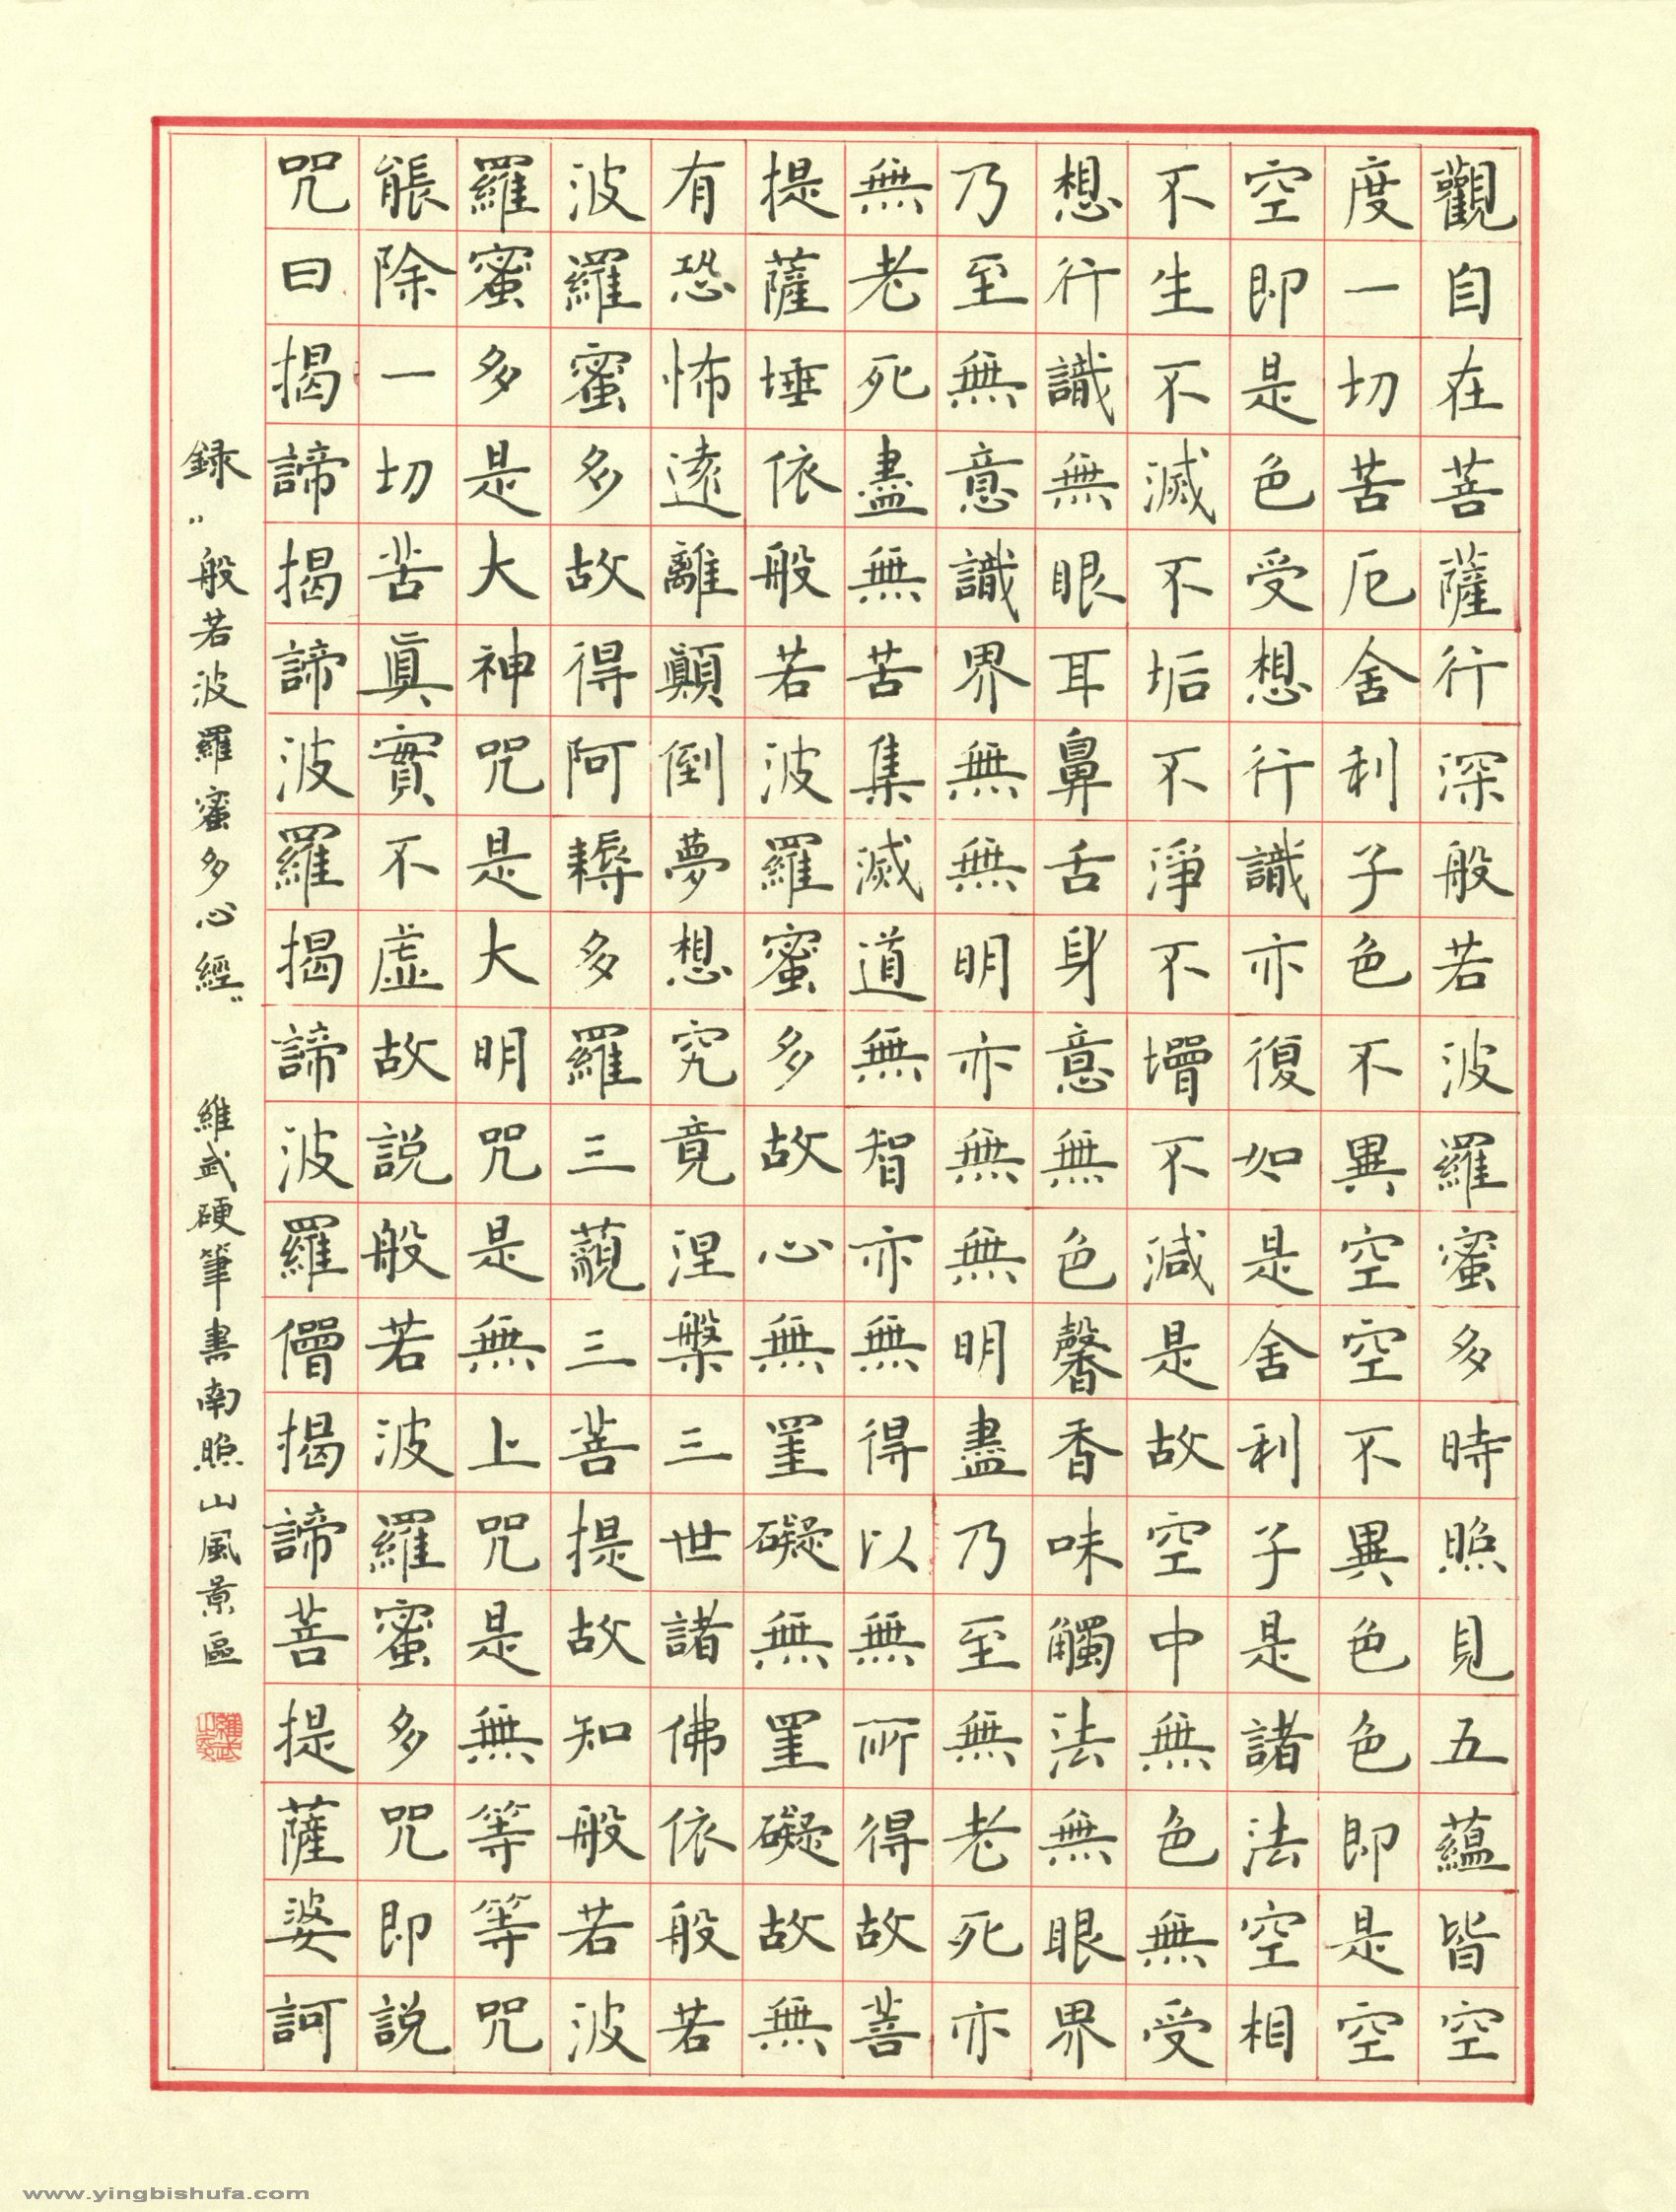 觀自在菩薩行深般若波羅蜜多時照見五蘊皆空
度一切苦厄舍利子色不異空空不異色色即是空
空即是色受想行識亦復如是舍利子是諸法空相
不生不滅不垢不淨不增不減是故空中無色無受
想行識無眼耳鼻舌身意無色馨香味觸法無眼界
乃至無意識界無無明亦無無明盡乃至無老死亦
無老死盡無苦集滅道無智亦無得以無所得故菩
提薩埵依般若波羅蜜多故心無罣礙無罣礙故無
有恐怖遠離顛倒夢想究竟涅槃三世諸佛依般若
波羅蜜多故得阿耨多羅三藐三菩提故知般若波
羅蜜多是大神咒是大明咒是無上咒是無等等咒
能除一切苦真實不虛故說般若波羅蜜多咒即說
咒曰揭諦揭諦波羅揭諦波羅僧揭諦菩提薩婆訶
録"般若波羅蜜多心經" 維武硬筆書南照山風景區
www.yingbishufa.com